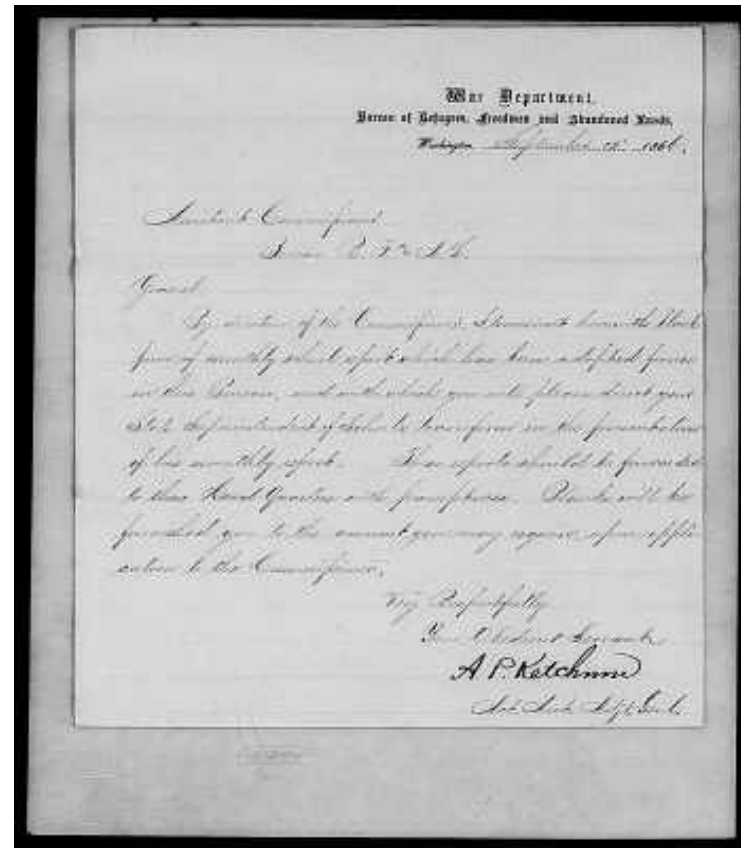 War Department,
Bureau of Refugees, Freedmen and Abandoned Lands,
Washington September 1866.
Assistant Commissioner
B. R. F. & A. L.
General
By direction of the Commissioner, I transmit herewith blank
form of monthly school report which has been adopted for use
in this Bureau, and with which you will please direct your
State Superintendent of Schools to conform in the
of his monthly report. These reports should be forwarded
to this Head Quarters with promptness. Blanks will be
furnished you to the amount you may require, upon appli
cation to the Commissioner.
Very Respectfully
Your Obedient Servant
A. P. Ketchum
Act Asst Adjt Genl.